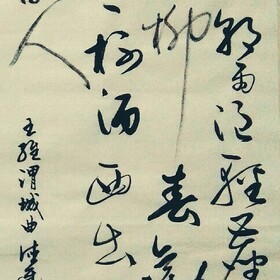 朝雨浥輕塵
柳春
一杯酒西出
人
王維渭城曲